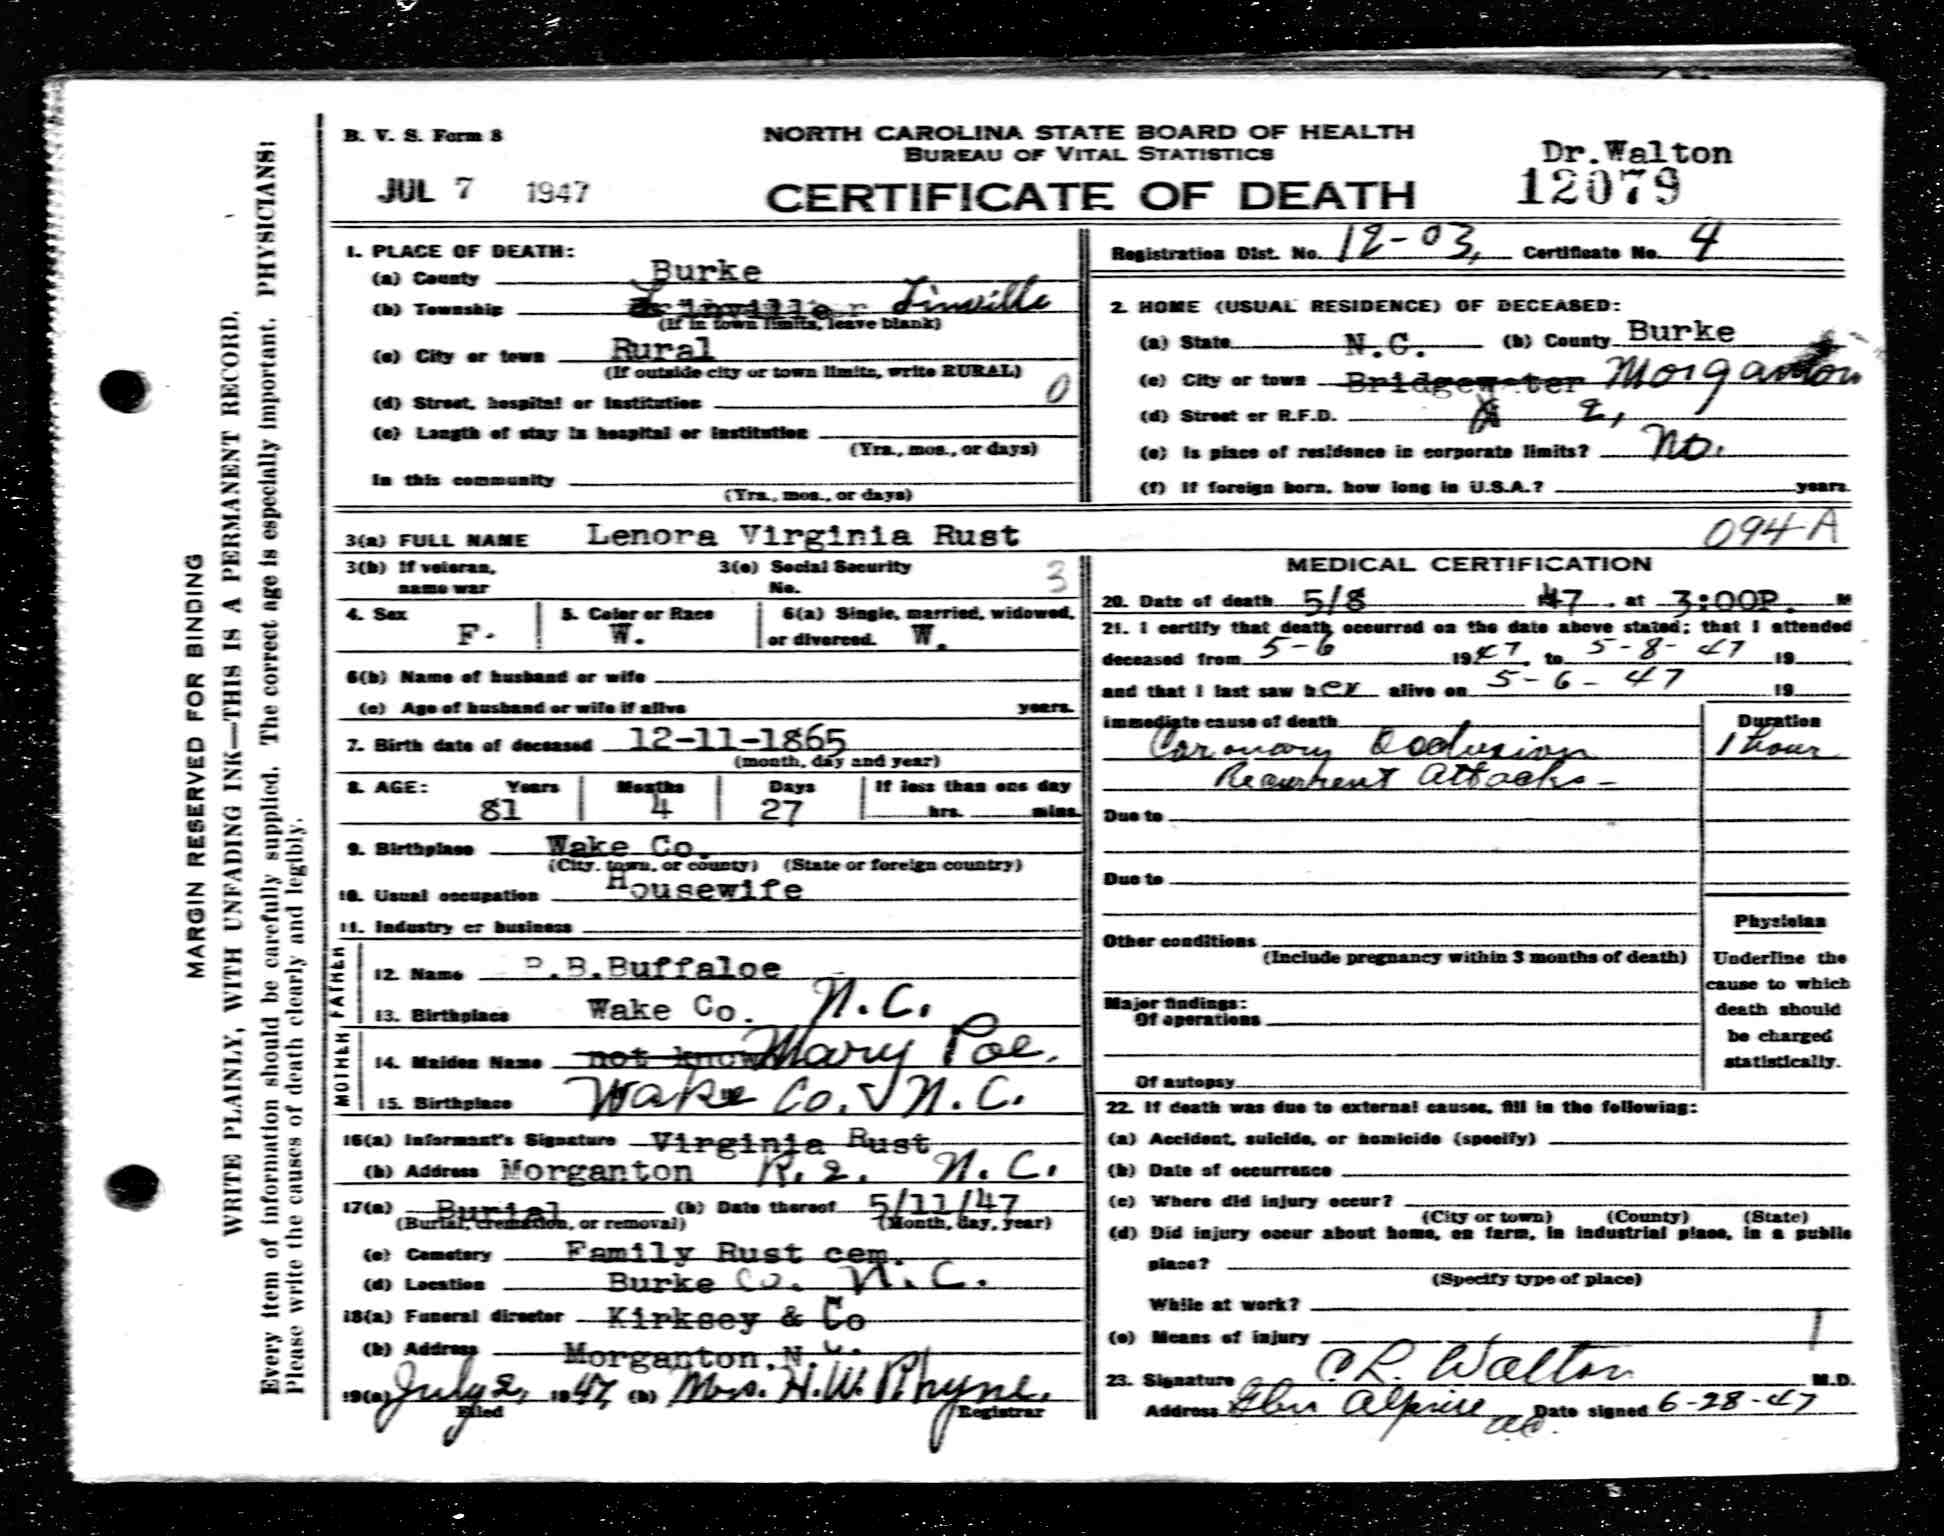 B. V. S. Form 8
NORTH CAROLINA STATE BOARD OF HEALTH
BUREAU OF VITAL STATISTICS
Dr.Walton
JUL 7 1947
CERTIFICATE OF DEATH
12079
MARGIN RESERVED FOR BINDING
WRITE PLAINLY, WITH UNFADING INK—THIS IS A PERMANENT RECORD.
Every item of information should be carefully supplied. The correct age is especially important. PHYSICIANS:
Please write the causes of death clearly and legibly.
1. PLACE OF DEATH:
(a) County Burke
(b) Township Linville
(If in town limits, leave blank)
(c) City or town Rural
(If outside city or town limits, write RURAL)
(d) Street, hospital or institution 0
(e) Length of stay in hospital or institution
(Yrs., mos., or days)
In this community
(Yrs., mos., or days)
Registration Dist. No. 12-03, Certificate No. 4
2. HOME (USUAL RESIDENCE) OF DECEASED:
(a) State N.C. (b) County Burke
(c) City or town Bridgewater Morganton
(d) Street or R.F.D. 2,
(e) Is place of residence in corporate limits? No.
(f) If foreign born, how long in U.S.A.? years.
3(a) FULL NAME Lenora Virginia Rust
094-A
3(b) If veteran, name war
3(c) Social Security No.
3
4. Sex F.
5. Color or Race W.
6(a) Single, married, widowed, or divorced. W.
6(b) Name of husband or wife
(c) Age of husband or wife if alive years.
7. Birth date of deceased 12-11-1865
(month, day and year)
8. AGE: Years Months Days If less than one day
81 4 27 hrs. mins.
9. Birthplace Wake Co.
(City, town, or county) (State or foreign country)
10. Usual occupation Housewife
11. Industry or business
FATHER
12. Name B.Buffaloe
13. Birthplace Wake Co. N.C.
MOTHER
14. Maiden Name not know Mary Poe.
15. Birthplace Wake Co. N.C.
16(a) Informant's Signature Virginia Rust
(b) Address Morganton R.2. N.C.
17(a) Burial (b) Date thereof 5/11/47
(Burial, cremation, or removal) (Month, day, year)
(c) Cemetery Family Rust cem.
(d) Location Burke Co. N.C.
18(a) Funeral director Kirksey & Co
(b) Address Morganton.N.C.
19(a) July 2, 1947 (b) Mrs. H.W. Rhyne.
Filed Registrar
MEDICAL CERTIFICATION
20. Date of death 5/8 47, at 3:00P. M
21. I certify that death occurred on the date above stated; that I attended
deceased from 5-6 1947, to 5-8-47 19
and that I last saw her alive on 5-6-47 19
Immediate cause of death
Duration
Coronary Occlusion 1 hour
Recurrent Attacks-
Due to
Due to
Other conditions
(Include pregnancy within 3 months of death)
Major findings:
Of operations
Of autopsy
Physician
Underline the
cause to which
death should
be charged
statistically.
22. If death was due to external causes, fill in the following:
(a) Accident, suicide, or homicide (specify)
(b) Date of occurrence
(c) Where did injury occur?
(City or town) (County) (State)
(d) Did injury occur about home, on farm, in industrial place, in a public
place?
(Specify type of place)
While at work?
(e) Means of injury
23. Signature C R. Walton M.D.
Address Glen Alpine Date signed 6-28-47